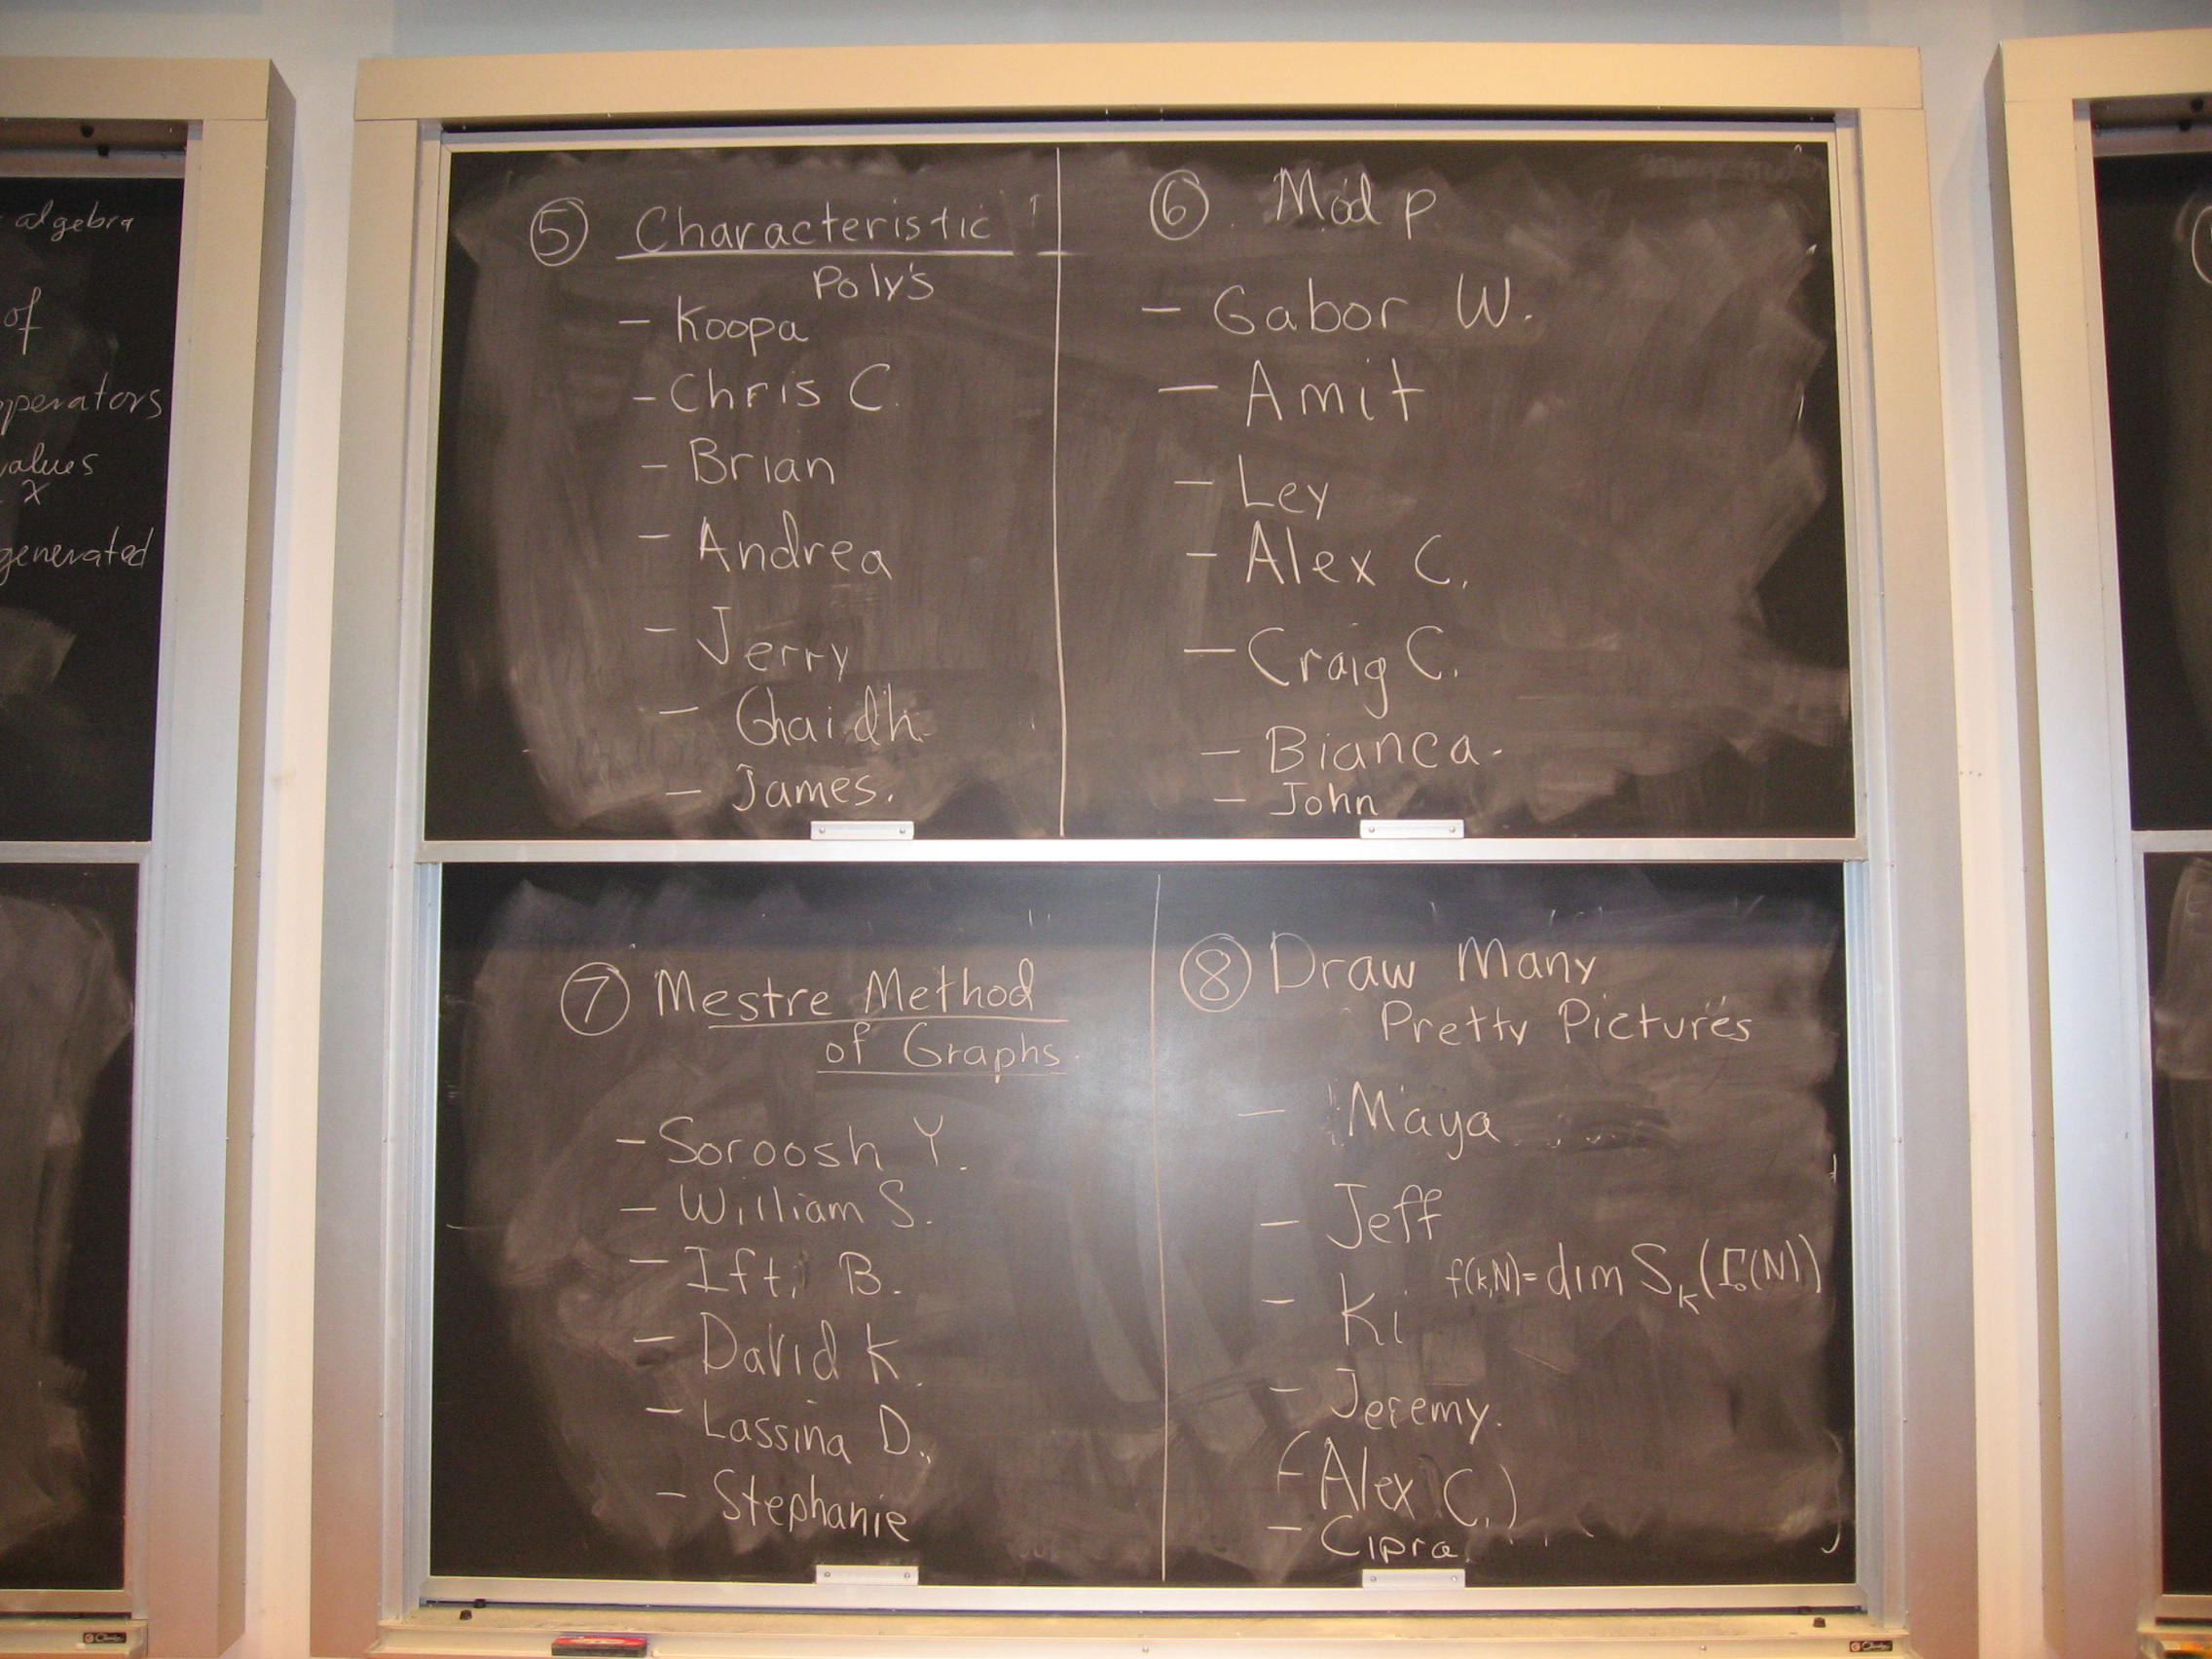 algebra
of
operators
values
x
generated
⑤ Characteristic
Poly's
- Koopa
- Chris C.
- Brian
- Andrea
- Jerry
- Ghaidh
- James.
⑥ Mod p
- Gabor W.
- Amit
- Ley
- Alex C.
- Craig C.
- Bianca
- John
⑦ Mestre Method
of Graphs
- Soroosh Y.
- William S.
- Ifti B.
- David K.
- Lassina D.
- Stephanie
⑧ Draw Many
Pretty Pictures
- Maya
- Jeff
f(k,N)= dim S_k(Γ₀(N))
- Ki
- Jeremy.
(- Alex C.)
- Cipra